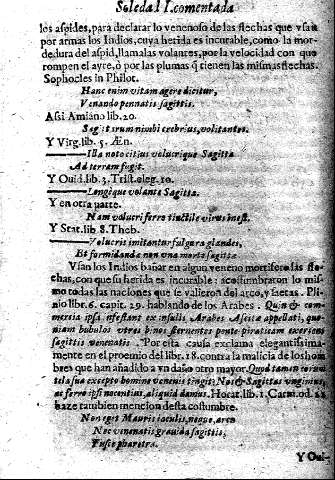 Soledad I. comentada
los aspides, para declarar lo venenoso de las flechas que vsan
por armas los Indios, cuya herida es incurable, como la mor-
dedura del aspid, llamalas volantes, por la velocidad con que
rompen el ayre, ò por las plumas q̃ tienen las mismas flechas.
Sophocles in Philot.
Hanc enim vitam agere dicitur,
Venando pennatis sagittis.
Asi Amiano lib. 20.
Sagittarum nimbi crebrius, volitantes.
Y Virg. lib. 5. Æn.
Illa noto citius volucrique Sagitta
Ad terram fugit.
Y Ouid. lib. 3. Trist. eleg. 10.
Longique volante Sagitta.
Y en otra parte.
Nam volucri ferro tinctile virus inest.
Y Stat. lib 8. Theb.
Volucris imitantur fulgura glandes,
Et formidanda non vna morte sagitta
Vsan los Indios bañar en algun veneno mortifero las fle-
chas, con que su herida es incurable: acostumbraron lo mis
mo todas las naciones que se valieron del arco, y saetas. Pli-
nio libr. 6. capit. 29. hablando de los Arabes. Quin & com-
mercia ipsa infestant ex insulis Arabes Ascitæ appellati, quo-
niam bubulos vtres binos sternentes ponte piraticam exercent
sagittis venenatis. Por esta causa exclama elegantissima-
mente en el proemio del libr. 18. contra la malicia de los hom
bres que han añadido a vn daño otro mayor. Quod tamen eorum
tela sua excepto homine venenis tingit? Nos & Sagittas vngimus,
ac ferro ipsi nocentius aliquid damus. Horat. lib. 1. Carm. od. 22
haze tambien mencion desta costumbre.
Non eget Mauris iaculis, neque, arcu
Nec venenatis grauida sagittis,
Fusce pharetra.
Y Oui-